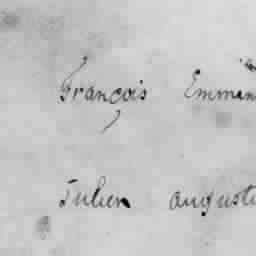 François Emman
Julien august